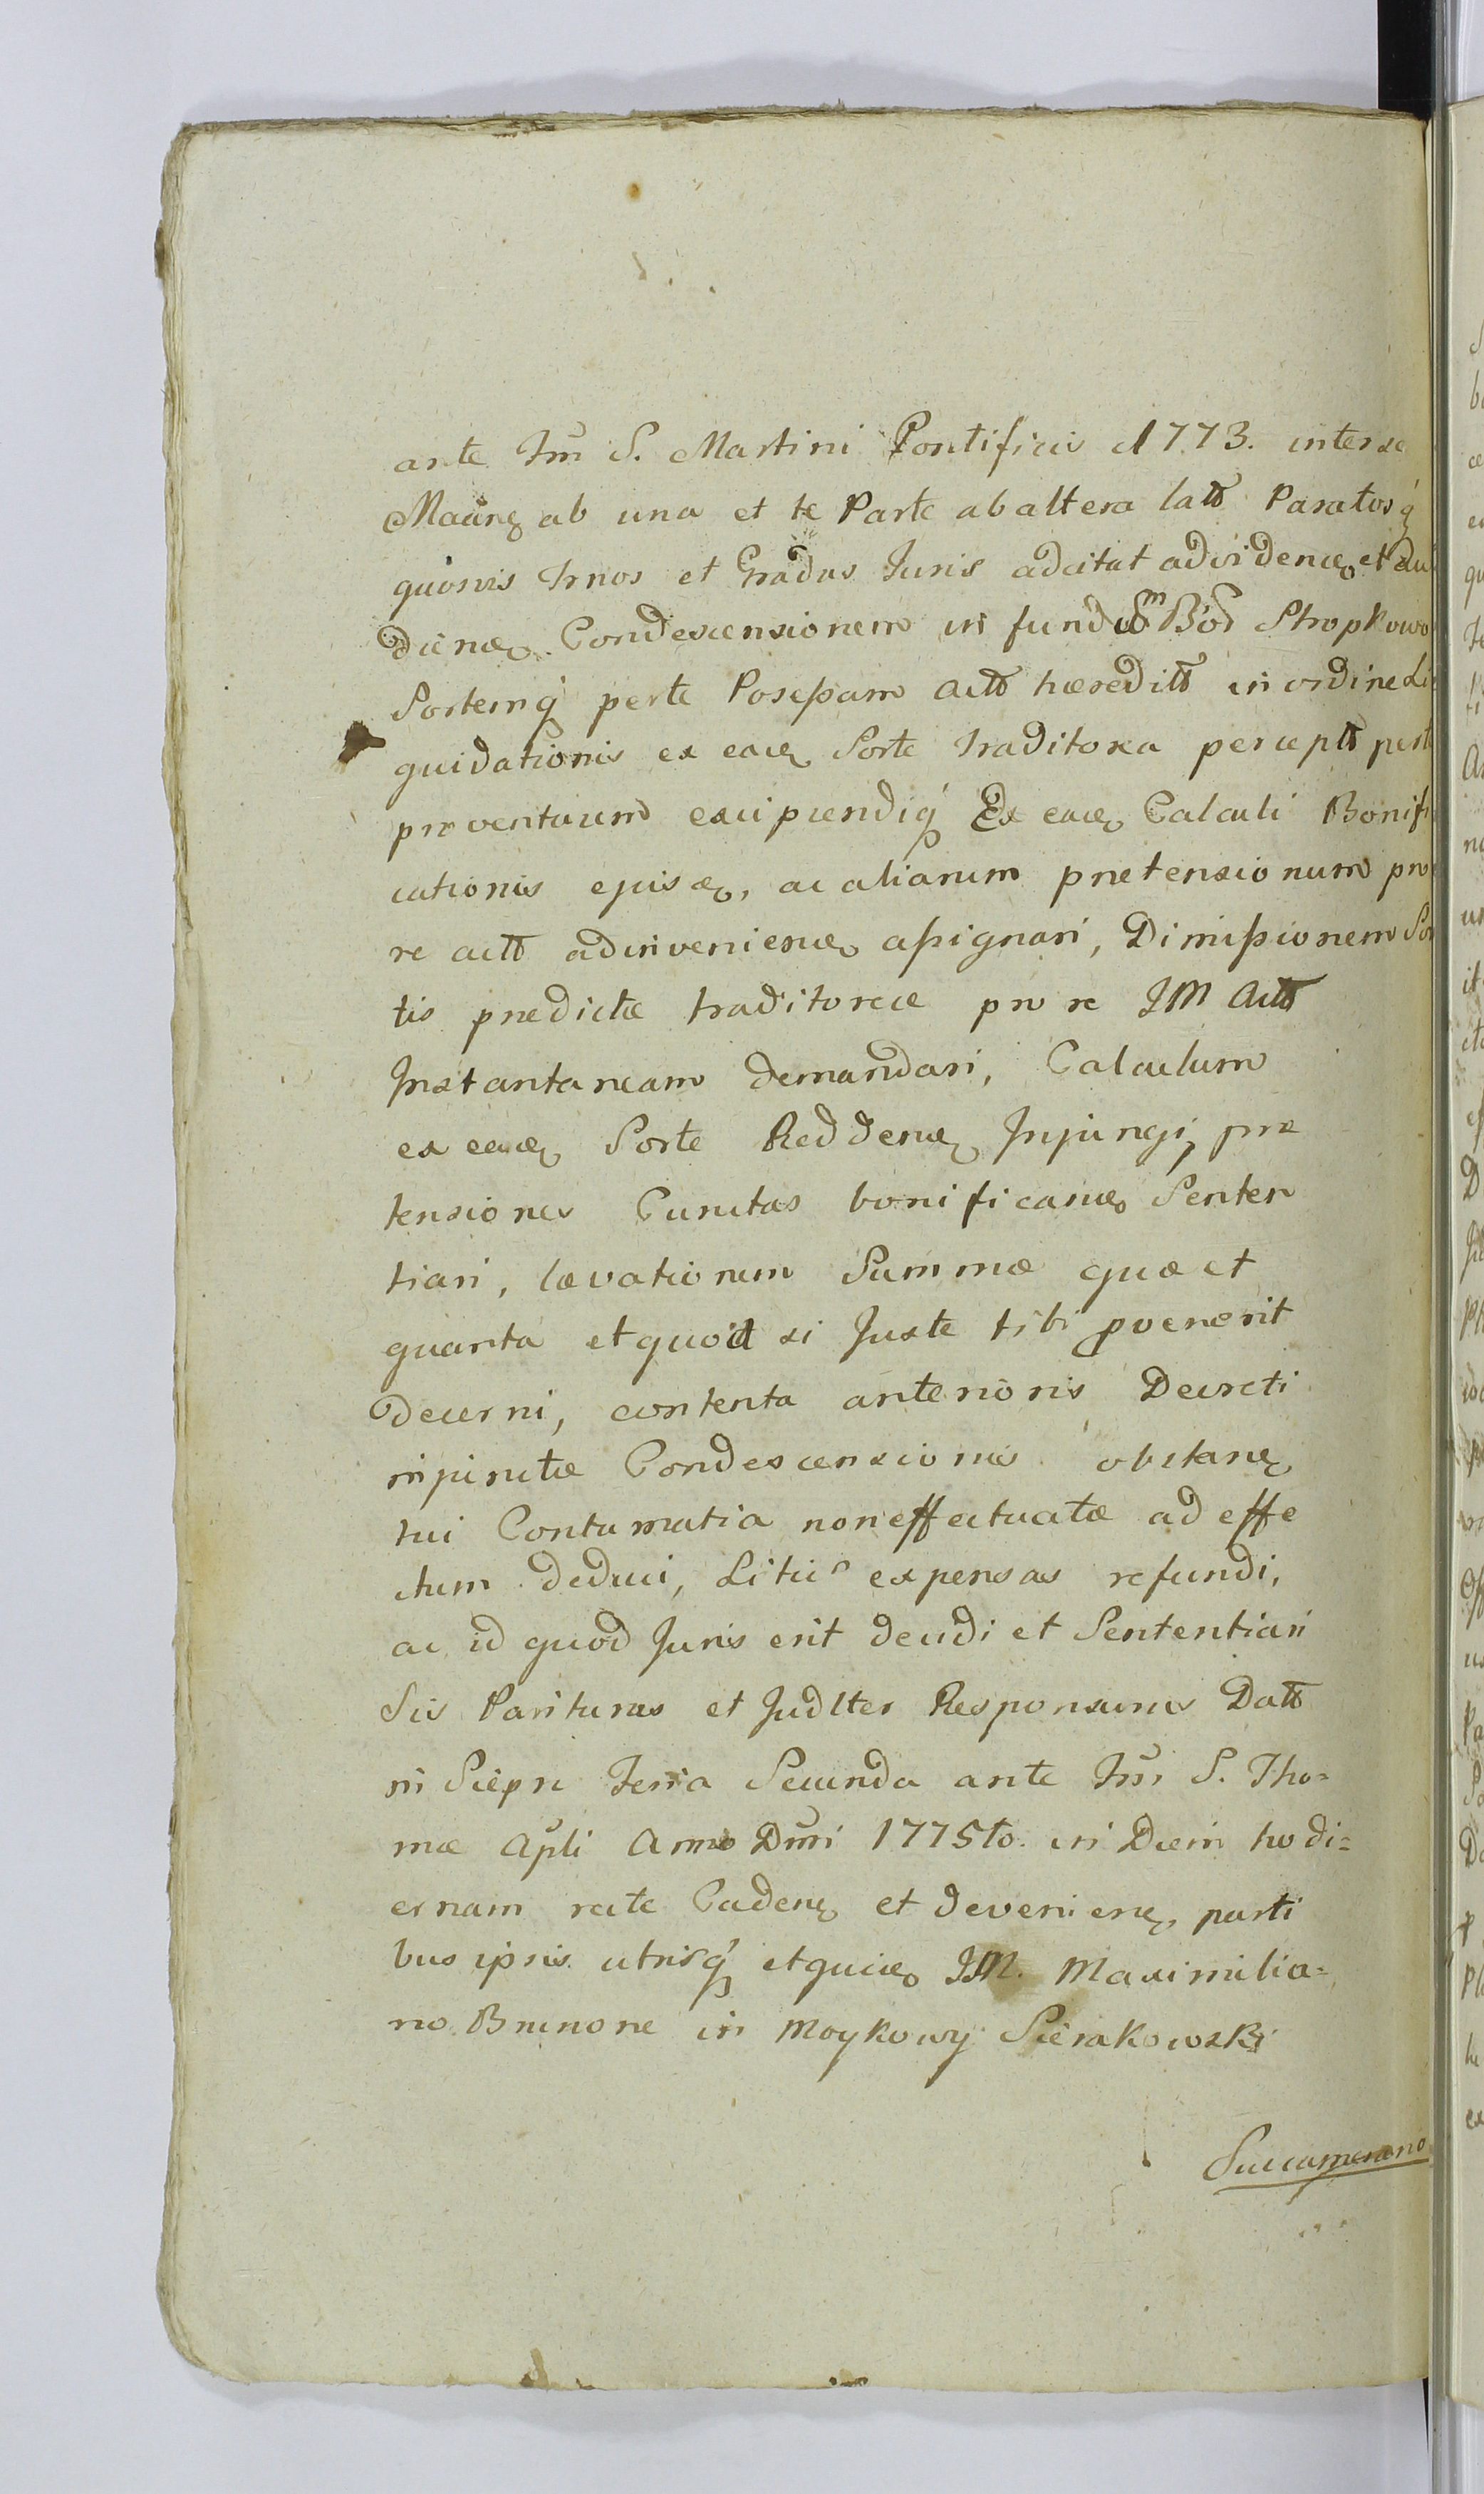 ante Fm̃ S. Martini Pontificis 1773. inter se
Maãne ab una et te Parte ab altera latt Paratosq́
quosvis Trnos et Gradus Juris adcitat ad videnɶ et au
dienɶ Condescensionem in fund Boñ Stropkowo
Sortemq́ per te Possessam actt hæreditt in ordine Li
quidationis ex eaɶ Sorte traditorea perceptt perte
proventuum excipiendiq́ Ex eaɶ Calculi Bonifi
cationis ejusɶ, ac aliarum pretensionum pro
re actt adinvenienɶ assignari, Dimissionem Sor
tis predictæ traditoreæ pro re JM Actt
Instantaneam demandari, Calculum
ex eaɶ Sorte Reddenɶ Injungi, præ
tensiones Cunctas bonificanɶ Senten
tiari, lævationem Summæ quæ et
quanta et quod si Juste tibi pvenerit
decerni, contenta anterioris Decreti
injunctæ Condescensionis obstanę
tui Contumatia non effectuatæ ad effe
ctum deduci, Litis expensas refundi,
ac id quod Juris erit decidi et Sententiari
Sis Pariturus et Judlter Responsurus Datt
in Sieprc feria Secunda ante Fm̃ S. Tho=
mæ Apli Anno Dm̃i 1775to. in Diem hodi=
ernam recte Cadenę et devenienę, parti
bus ipsis utrisq́ et quiɶ JM. Maximilia=
no Brunone in Moykowy Sierakowski
Succamerario